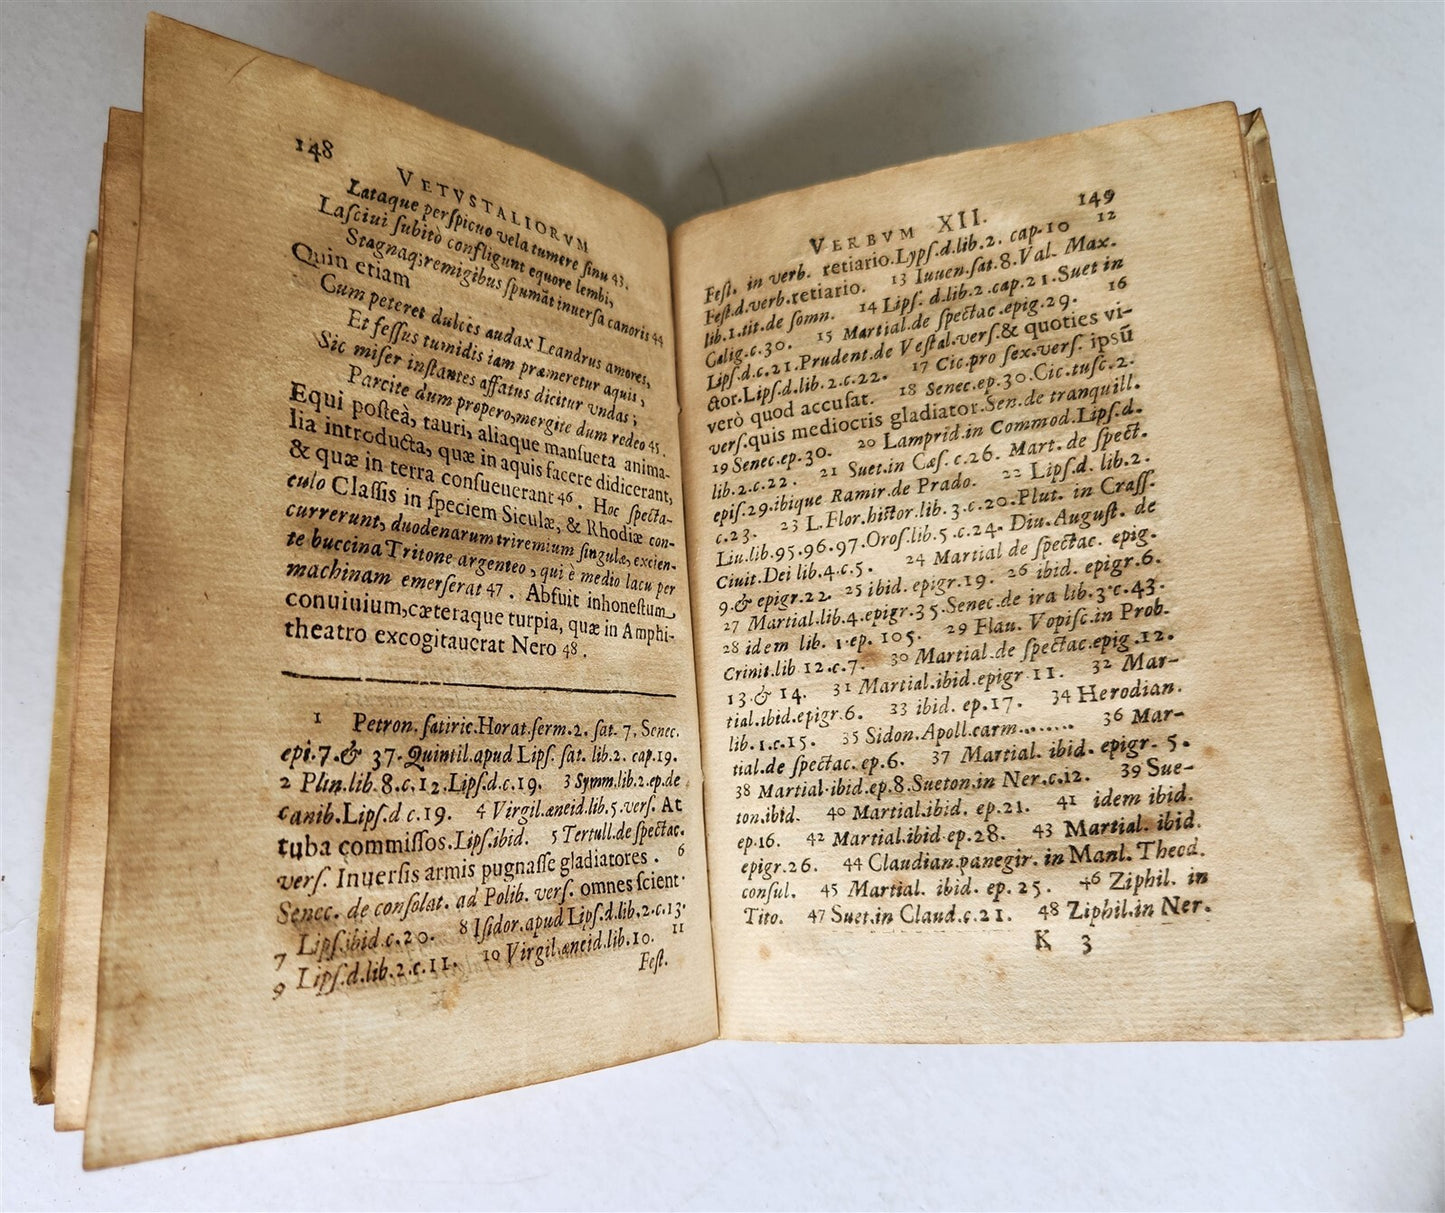 148
VETVSTALIORVM
Lataque perſpicuo vela tumere ſinu 43.
Laſciui ſubitò confligunt equore lembi,
Stagnaq; remigibus ſpumāt inuerſa canoris 44
Quin etiam
Cum peteret dulces audax Leandrus amores,
Et feſſus tumidis iam præmeretur aquis,
Sic miſer inſtantes affatus dicitur vndas;
Parcite dum propero, mergite dum redeo 45.
Equi poſteà, tauri, aliaque manſueta anima-
lia introducta, quæ in aquis facere didicerant,
& quæ in terra conſueuerant 46. Hoc ſpecta-
culo Claſſis in ſpeciem Siculæ, & Rhodiæ con-
currerunt, duodenarum triremium ſingulæ, excien-
te buccina Tritone argenteo, qui è medio lacu per
machinam emerſerat 47. Abfuit inhoneſtum
conuiuium, cæteraque turpia, quæ in Amphi-
theatro excogitauerat Nero 48.
1 Petron. ſatiric. Horat. ſerm. 2. ſat. 7. Senec.
epi. 7. & 37. Quintil. apud Lipſ. ſat. lib. 2. cap. 19.
2 Plin. lib. 8. c. 12. Lipſ. d. c. 19. 3 Symm. lib. 2. ep. de
canib. Lipſ. d c. 19. 4 Virgil. æneid. lib. 5. verſ. At
tuba commiſſos. Lipſ. ibid. 5 Tertull. de ſpectac.
verſ. Inuerſis armis pugnaſſe gladiatores. 6
Senec. de conſolat. ad Polib. verſ. omnes ſcient.
7 Lipſ. ibid. c. 20. 8 Iſidor. apud Lipſ. d. lib. 2. c. 13.
9 Lipſ. d. lib. 2. c. 11. 10 Virgil. æneid. lib. 10. 11
Feſt.
VERBVM XII. 149
Feſt. in verb. retiario. Lypſ. d. lib. 2. cap. 10 12
Feſt. d. verb. retiario. 13 Iuuen. ſat. 8. Val. Max.
lib. 1. tit. de ſomn. 14 Lipſ. d. lib. 2. cap. 21. Suet in
Calig. c. 30. 15 Martial. de ſpectac. epig. 29. 16
Lipſ. d. c. 21. Prudent. de Veſtal. verſ. & quoties vi-
ctor. Lipſ. d. lib. 2. c. 22. 17 Cic. pro ſex. verſ. ipsū
verò quod accuſat. 18 Senec. ep. 30. Cic. tuſc. 2.
verſ. quis mediocris gladiator. Sen. de tranquill.
19 Senec. ep. 30. 20 Lamprid. in Commod. Lipſ. d.
lib. 2. c. 22. 21 Suet. in Cæſ. c. 26. Mart. de ſpect.
epiſ. 29. ibique Ramir. de Prado. 22 Lipſ. d. lib. 2.
c. 23. 23 L. Flor. hiſtor. lib. 3. c. 20. Plut. in Craſſ.
Liu. lib. 95. 96. 97. Oroſ. lib. 5. c. 24. Diu. Auguſt. de
Ciuit. Dei lib. 4. c. 5. 24 Martial de ſpectac. epig.
9. & epigr. 22. 25 ibid. epigr. 19. 26 ibid. epigr. 6.
27 Martial. lib. 4. epigr. 35. Senec. de ira lib. 3. c. 43.
28 idem lib. 1. ep. 105. 29 Flau. Vopiſc. in Prob.
Crinit. lib 12. c. 7. 30 Martial. de ſpectac. epig. 12.
13. & 14. 31 Martial. ibid. epigr 11. 32 Mar-
tial. ibid. epigr. 6. 33 ibid. ep. 17. 34 Herodian.
lib. 1. c. 15. 35 Sidon. Apoll. carm........ 36 Mar-
tial. de ſpectac. ep. 6. 37 Martial. ibid. epigr. 5.
38 Martial. ibid. ep. 8. Sueton. in Ner. c. 12. 39 Sue-
ton. ibid. 40 Martial. ibid. ep. 21. 41 idem ibid.
ep. 16. 42 Martial. ibid. ep. 28. 43 Martial. ibid.
epigr. 26. 44 Claudian. panegir. in Manl. Theod.
conſul. 45 Martial. ibid. ep. 25. 46 Ziphil. in
Tito. 47 Suet. in Claud. c. 21. 48 Ziphil. in Ner.
K 3